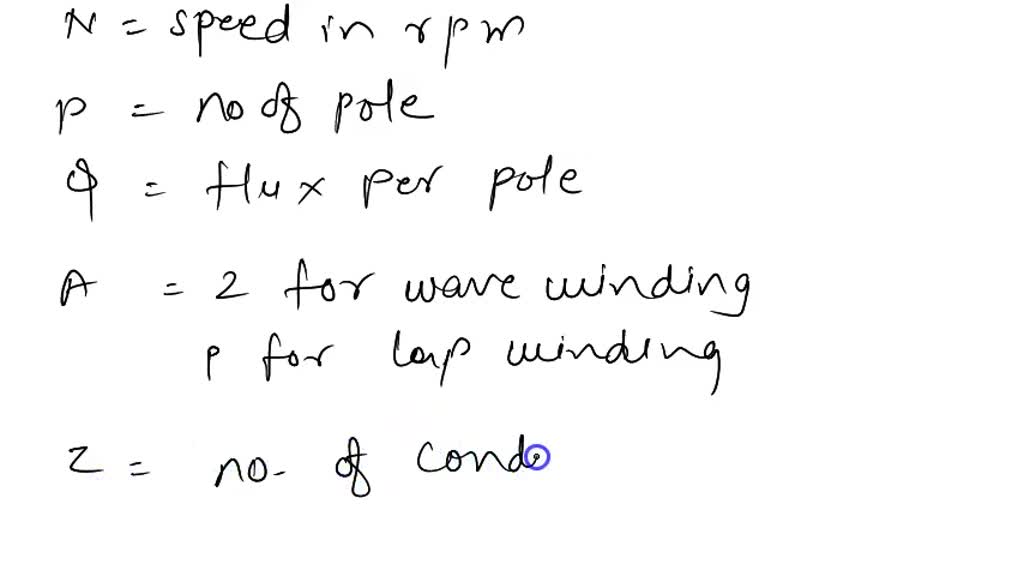 N = speed in rpm
P = no of pole
φ = flux per pole
A = 2 for wave winding
P for lap winding
Z = no. of cond